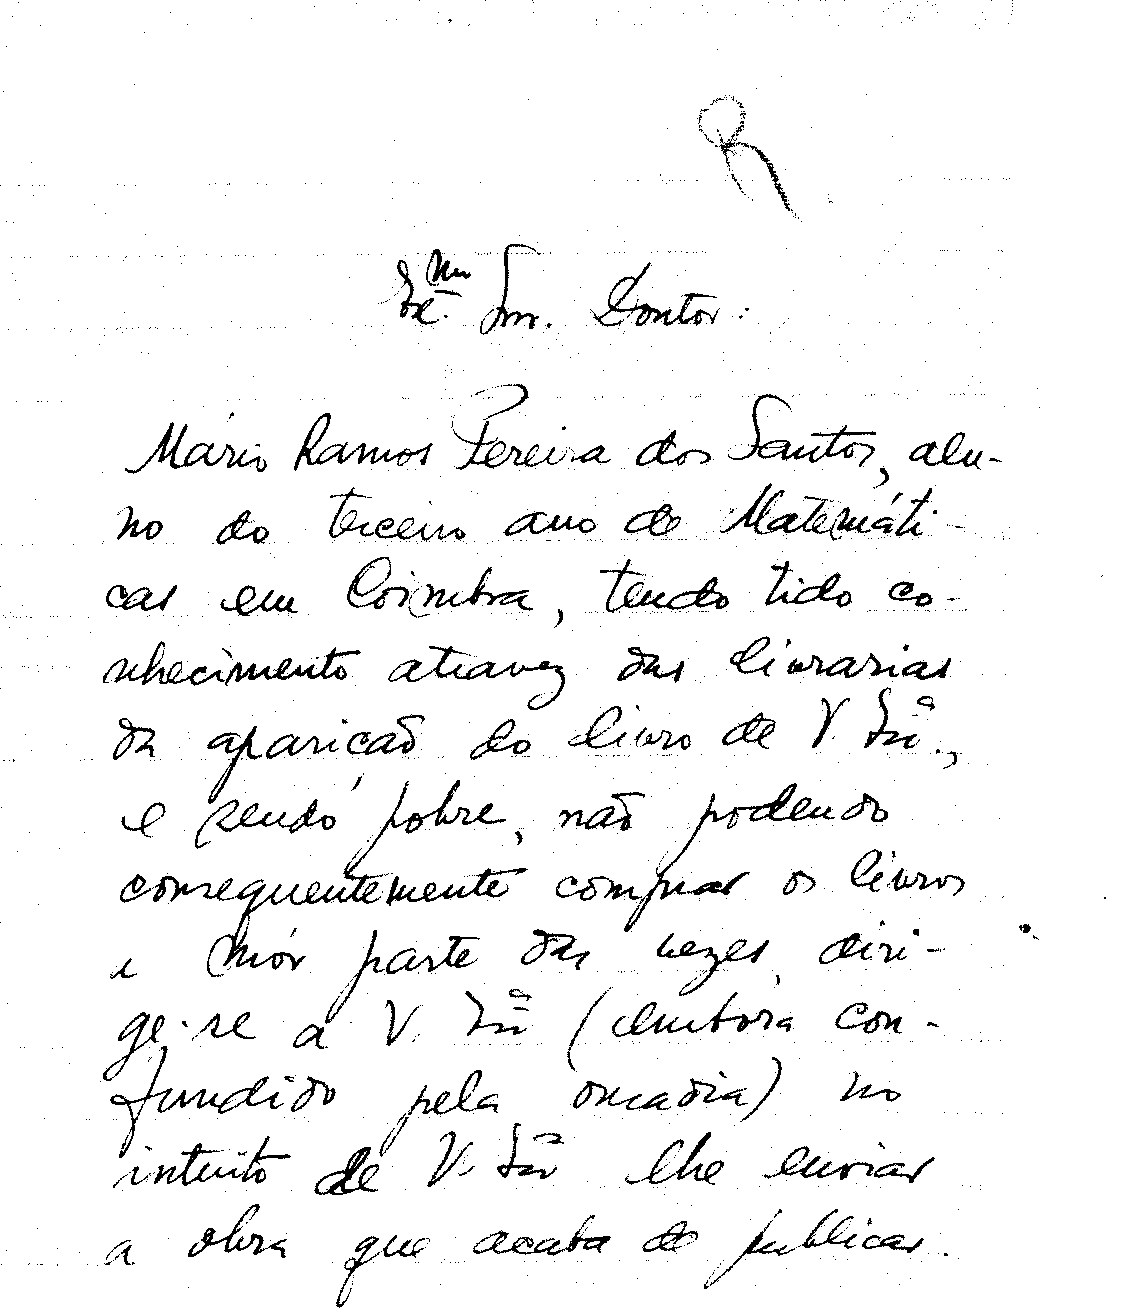 R
Ex.mo Snr. Doutor:
Mário Ramos Pereira dos Santos, alu-
no do terceiro ano de Matemáti-
cas em Coimbra, tendo tido co-
nhecimento atravez das livrarias
da aparição do livro de V. Exª.,
e sendo pobre, não podendo
consequentemente comprar os livros
a mór parte das vezes, diri-
ge-se a V. Exª (embora con-
fundido pela ousadia) no
intuito de V. Exª lhe enviar
a obra que acaba de publicar.